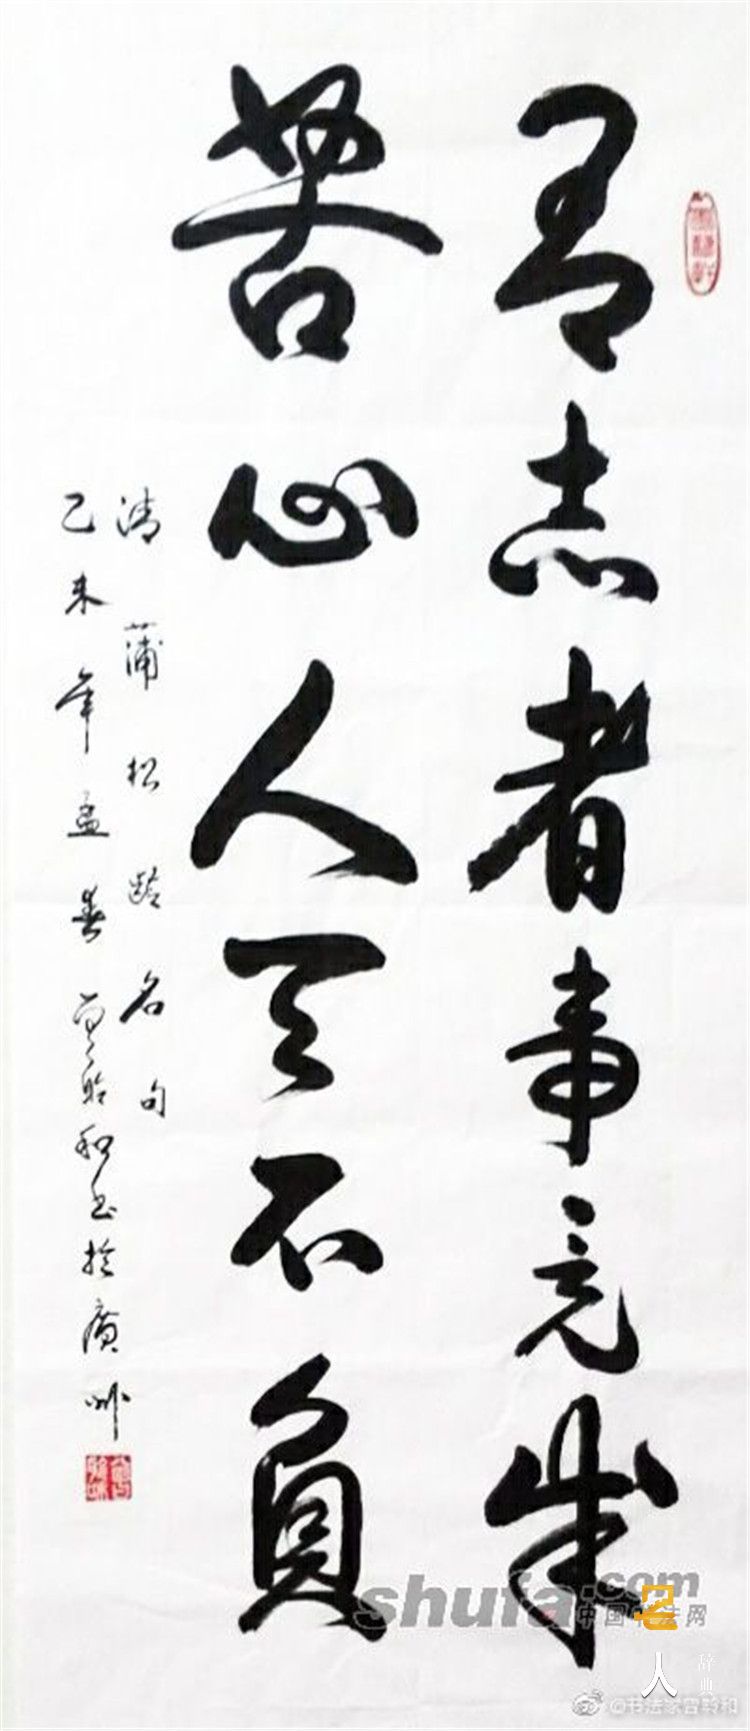 有志者事竟成
苦心人天不負
清蒲松齡名句
乙未年孟春宫聆和书於廣州
shufa.com
中国书法网
名人
辞典
@书法家宫聆和